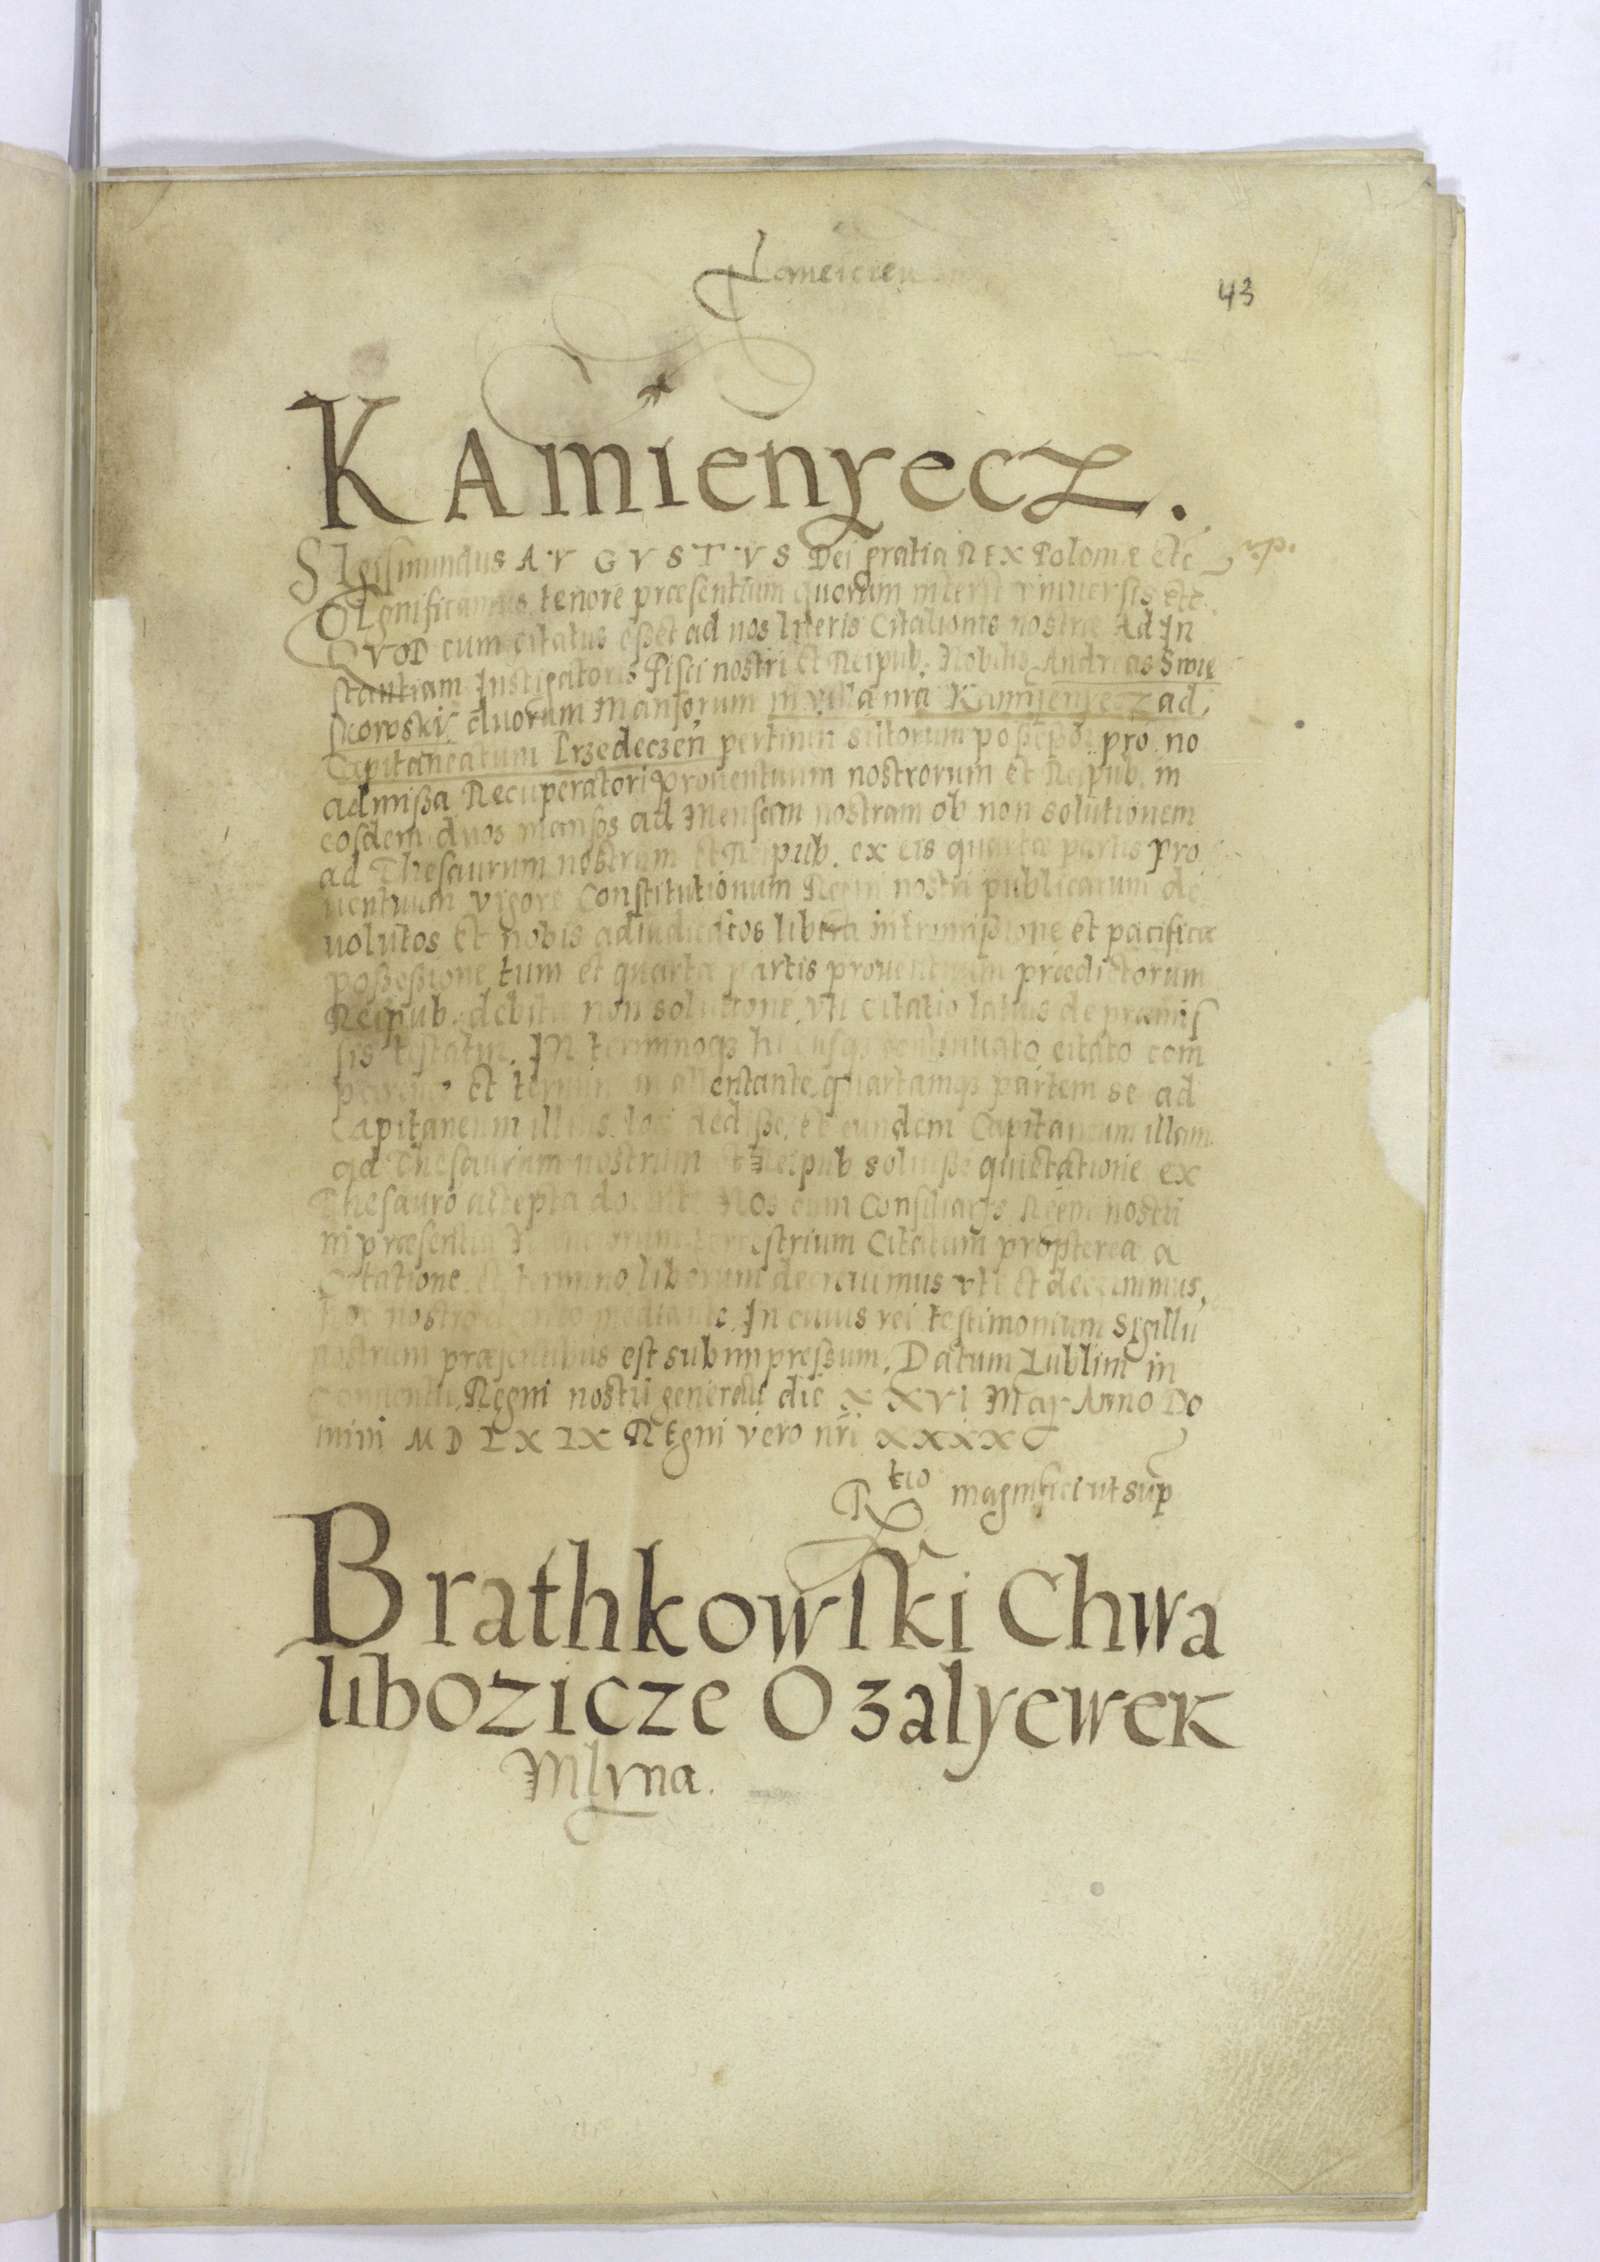 43
KAmienyecz.
SIgismundus AVGVSTVS Dei gratia REX Poloniæ etc
SIgnificamus tenore præsentium quorum interest vniuersis etc.
QVOD cum citatus esset ad nos literis Citationis nostræ Ad In
stantiam Instigatoris Fisci nostri Et Reipub. Nobilis Andreas Swię
skowski, duorum Mansorum in villa nra Kamyenyecz ad
Capitaneatum Przedeczen pertinen sitorum possessor, pro no
admissa Recuperatori prouentuum nostrorum et Reipub. in
eosdem duos mansos ad Mensam nostram ob non solutionem
ad Thesaurum nostrum et Reipub. ex eis quartæ partis pro
uentuum vigore Constitutionum Regni nostri publicarum de
uolutos Et nobis adiudicatos libera intromissione et pacifica
possessione, tum et quartæ partis prouentuum prædictorum
Reipub. debita non solutione, vti citatio latius de præmis
sis testatur. IN terminoq; hucusq; continuato citato com
et terminum attentante, quartamq; partem se ad
Capitaneum illius loci dedisse, et eundem Capitaneum illam
ad Thesaurum nostrum et Reipub soluisse quietatione ex
Thesauro accepta docuit. Nos cum Consiliarys Regni nostri
in præsentia Nunciorum terrestrium Citatum propterea a
Citatione et termino liberum decreuimus vti et decernimus,
Hoc nostro decreto mediante. In cuius rei testimonium Sigillu
nostrum præsentibus est subimpressum. Datum Lublini in
Conuentu Regni nostri generali die XXVI May Anno Do
mini MDLXIX REgni vero nri XXXX
Rtio magnifici ut sup
Brathkowski Chwa
libozicze Ozalyewek
Mlyna.